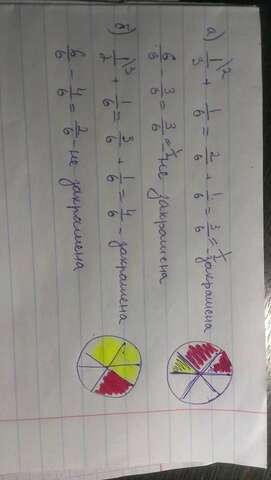 а) 1/3\2 + 1/6 = 2/6 + 1/6 = 3/6 = 1/2 - закрашена
6/6 - 3/6 = 3/6 = 1/2 - не закрашена
б) 1/2\3 + 1/6 = 3/6 + 1/6 = 4/6 - закрашена
6/6 - 4/6 = 2/6 - не закрашена